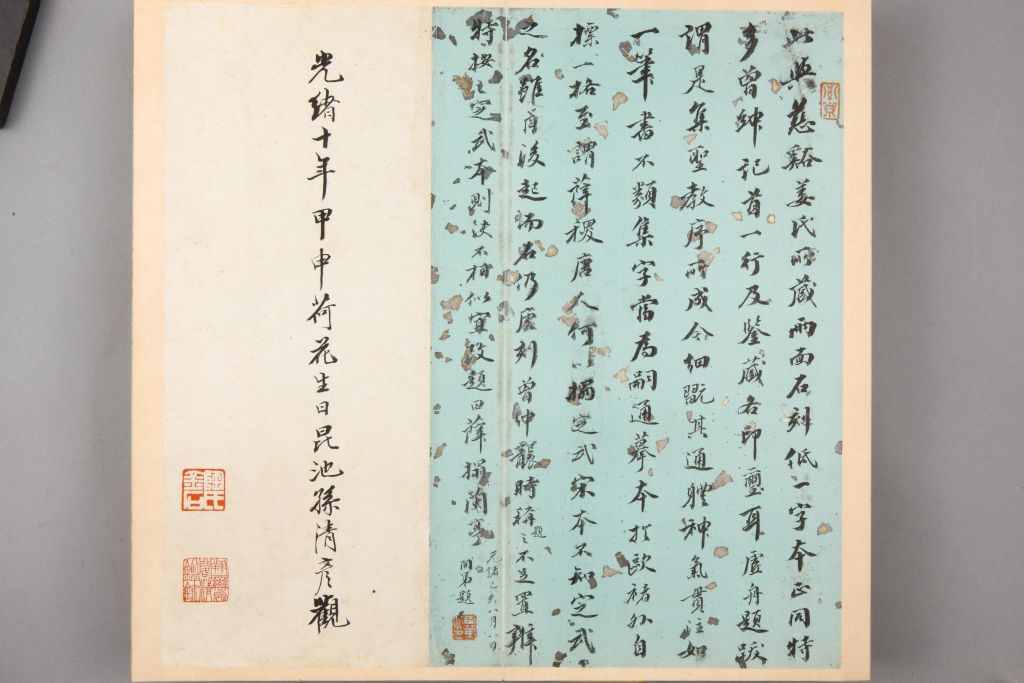 此與慈谿姜氏所藏兩面石刻低一字本正同特
多曾紳記首一行及鑒藏各印璽耳虛舟題跋
謂是集聖教序所成今細翫其通體神氣貫注如
一筆書不類集字當為嗣通摹本於歐褚外自
標一格至謂薛稷唐人何以搨定武宋本不知定武
之名雖自後起而石仍唐刻曾仲龔時稱之不足置辨
題
特搨之定武本則決不相似宜改題曰薛搨蘭亭
光緒己亥八月八日
光緒十年甲申荷花生日昆池孫清彥觀